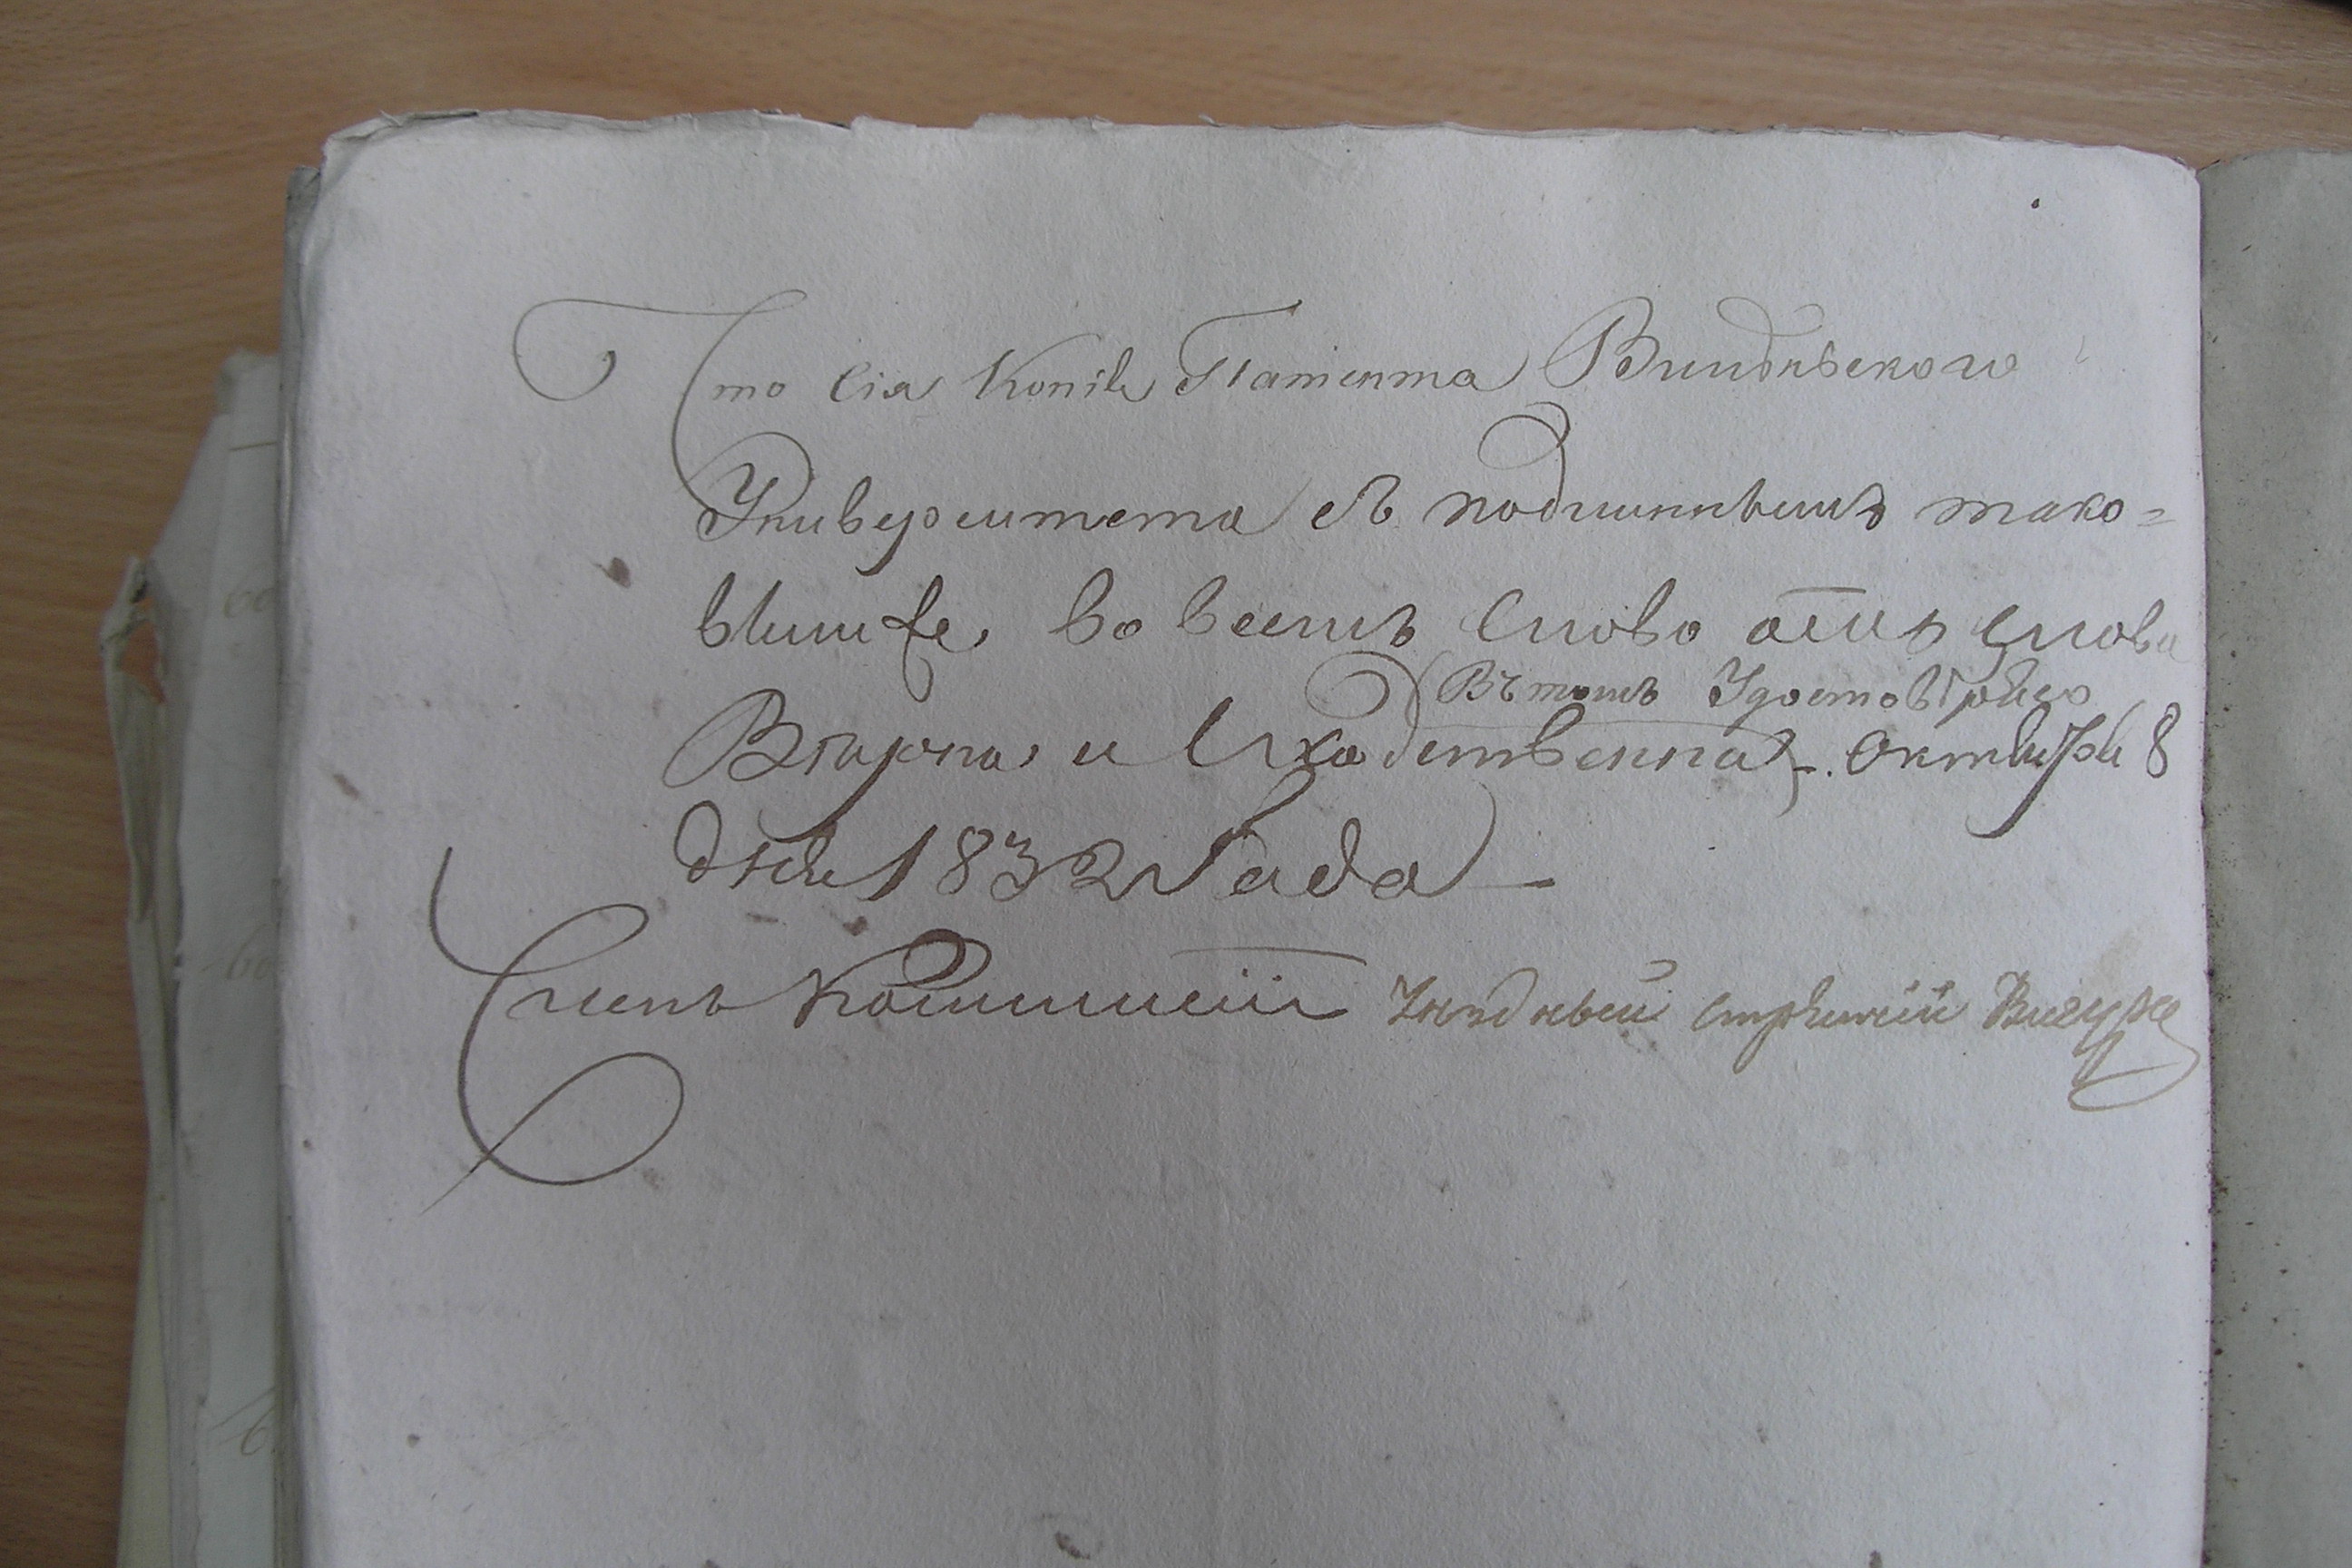 Что сія Копія Патента Виленскаго
Университета съ подлиннымъ тако=
вымже во всемъ слово отъ слова
Въ томъ Удостовѣряю
Вѣрна и Сходственна. Октября 8
дня 1832 Года
Членъ Коммисіи Уѣздный стряпчій